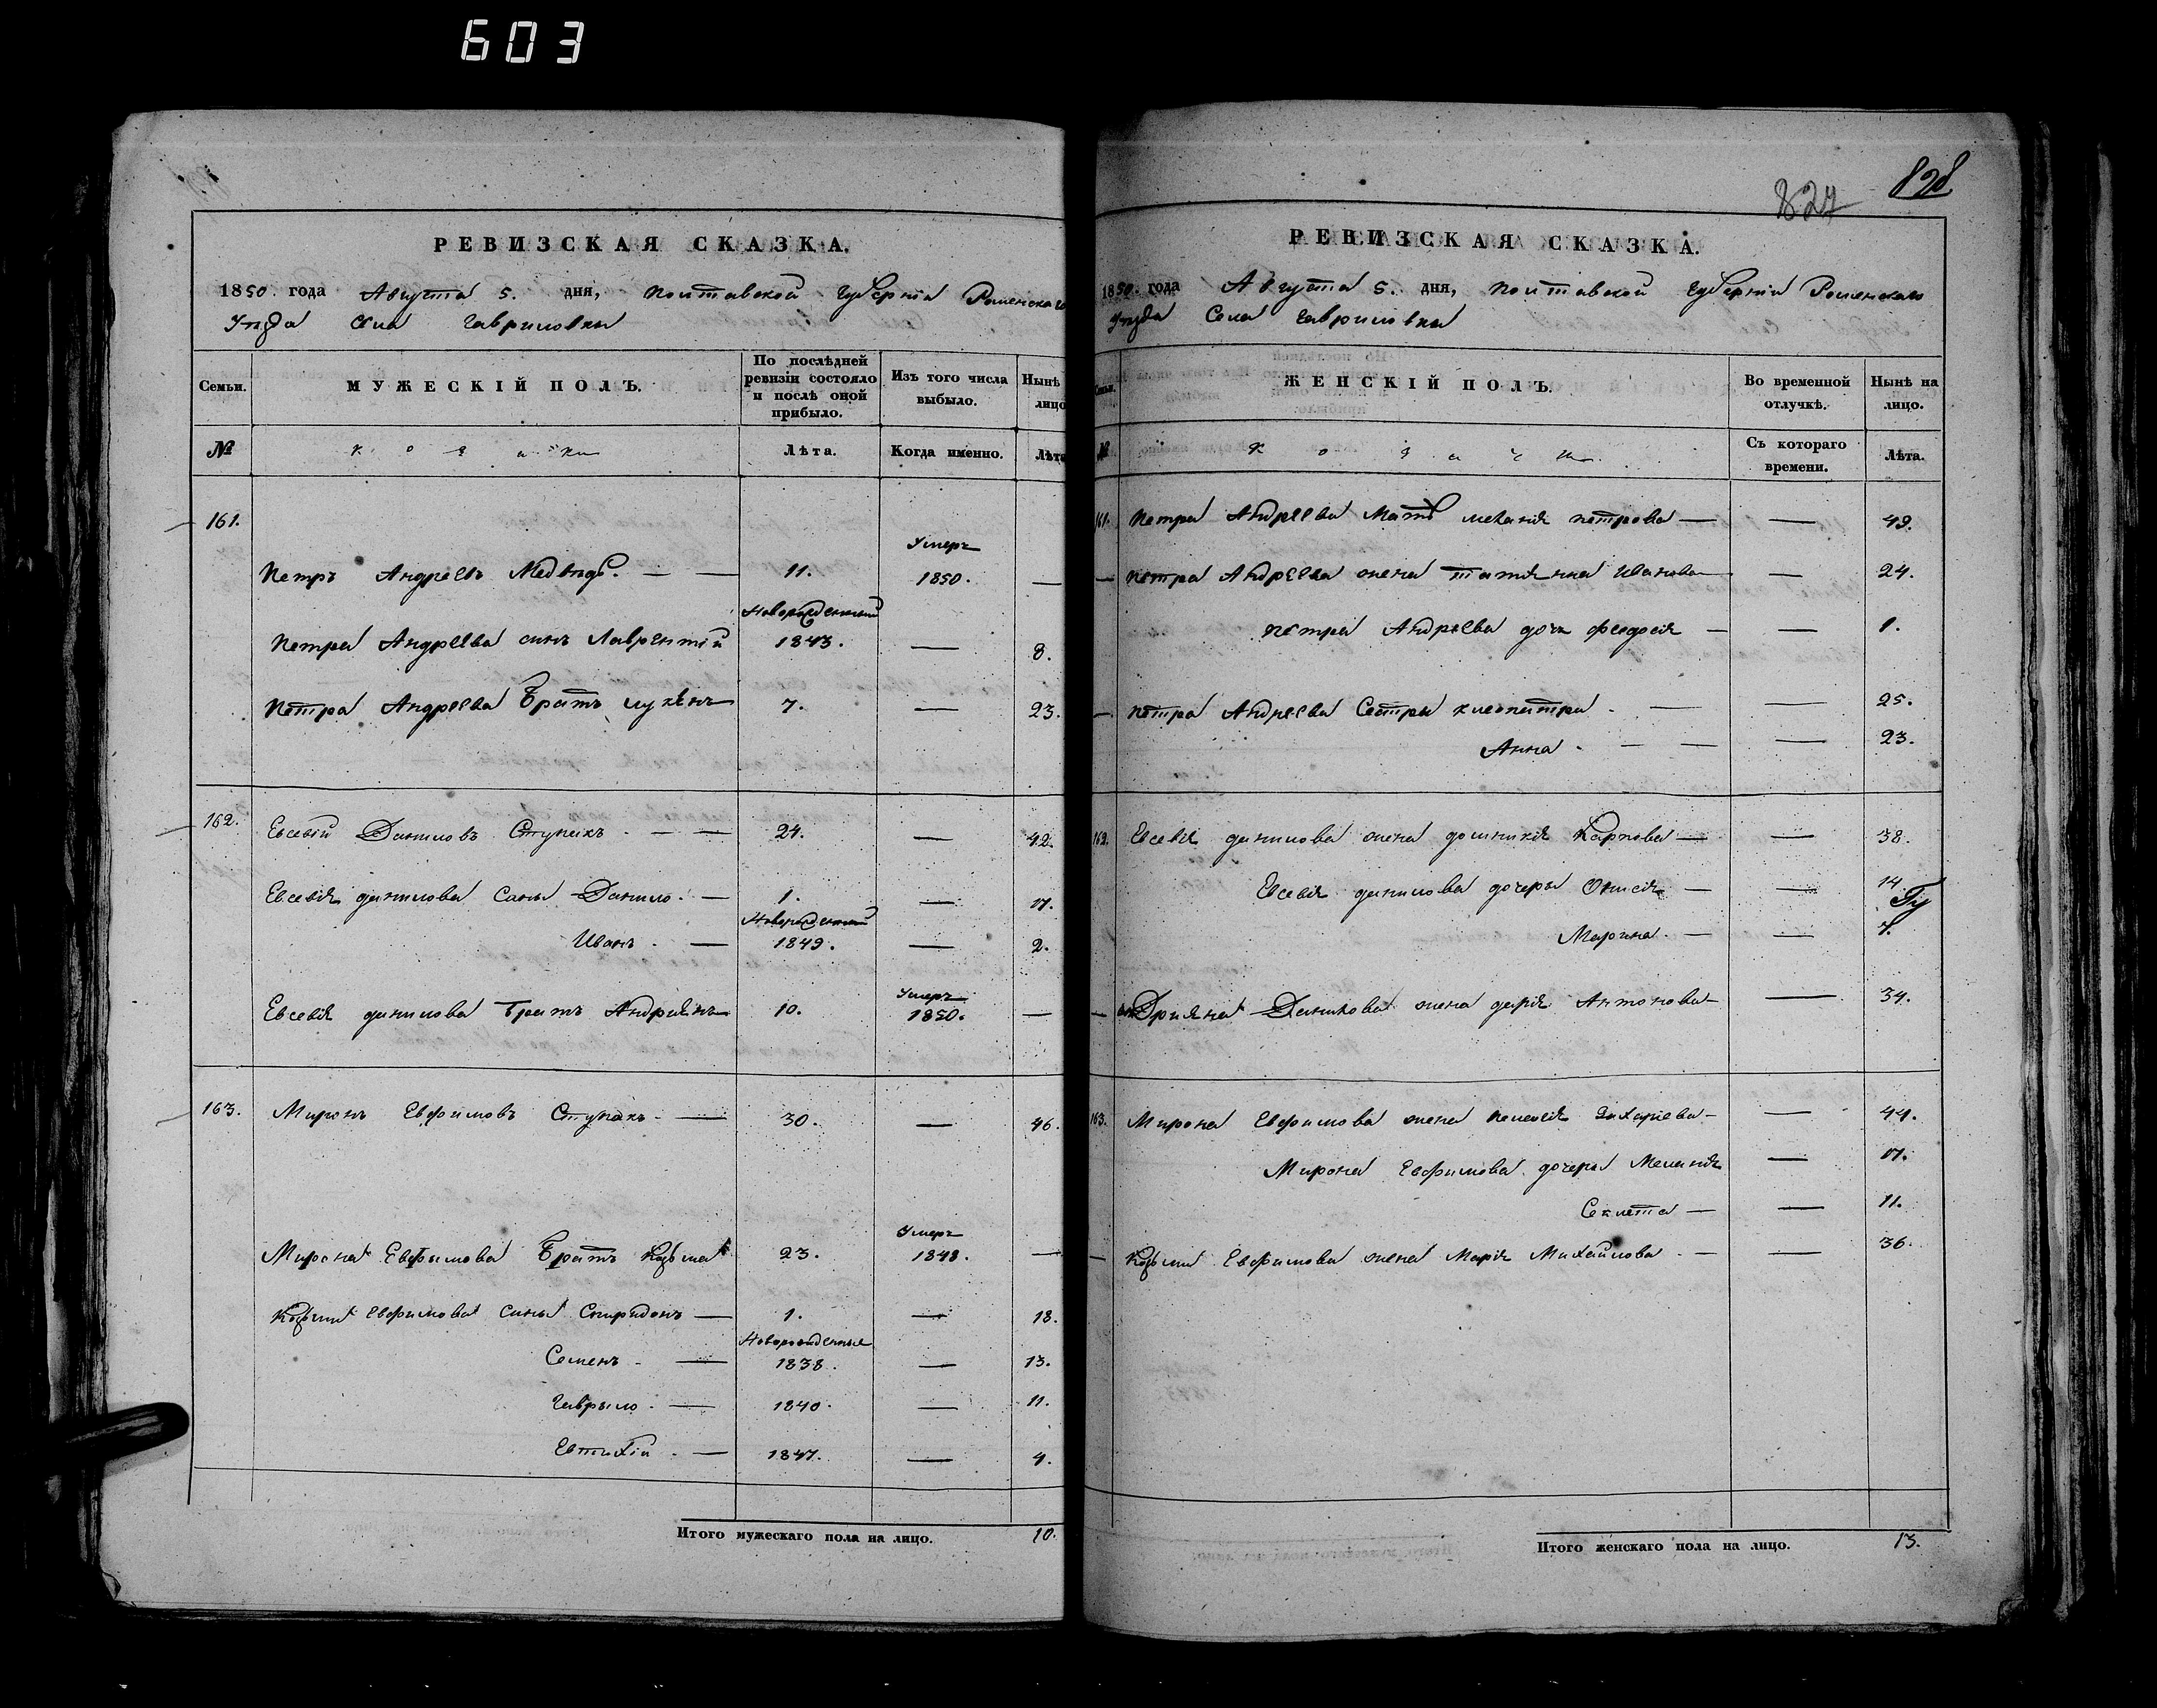 603
РЕВИЗСКАЯ СКАЗКА.
1850. года Августа 5. дня, Полтавской Губерніи Роменскаго
Уезда Села Гавриловки
Семьи.
МУЖЕСКІЙ ПОЛЪ.
По послѣдней ревизіи состояло и послѣ оной прибыло.
Изъ того числа выбыло.
Нынѣ лицо
№
Козаки
Лѣта.
Когда именно.
Лѣта
161.
Петръ Андреевъ Медведь. — — 11. Умеръ 1850. —
Петра Андреева синъ Лаврентій Новорожденный 1843. — 8.
Петра Андреева Братъ Лукянъ 7. — 23.
162. Евсевій Даниловъ Ступакъ. — — 24. — 42.
Евсевія данилова Сины Данило. — 1. — 17.
Иванъ. — Новорожденный 1849. — 2.
Евсевія данилова Братъ Андріянъ 10. Умеръ 1850. —
163. Миронъ Евфимовъ Ступакъ — 30. — 46.
Мирона Евфимова Братъ Козьма 23. Умеръ 1848. —
Козьми Евфимова Сины Спиридонъ — 1. — 18.
Семенъ. — Новорожденные 1838. — 13.
Гаврыло. — 1840. — 11.
Евтихій. — 1847. — 4.
Итого мужескаго пола на лицо. 10.
827 828
РЕВИЗСКАЯ СКАЗКА.
1850. года Августа 5. дня, Полтавской Губерніи Роменскаго
Уезда Села Гавриловки
Семьи.
ЖЕНСКІЙ ПОЛЪ.
Во временной отлучкѣ.
Нынѣ на лицо.
№
Козачки
Съ котораго времени.
Лѣта.
161. Петра Андреева Мать Меланія Петрова — — 49.
— Петра Андреева жена Татіянна Иванова — — 24.
Петра Андреева дочь Феодосія — — 1.
— Петра Андреева Сестры Клеопатра. — — 25.
Анна. — — — 23.
162. Евсевія данилова жена домникія Карпова — — 38.
Евсевія данилова дочеры Онисія — — 14.
Марина. — — 7.
— Андріяна Данилова жена дарія Антонова — — 34.
163. Мирона Евфимова жена Пелагія Захарієва — — 44.
Мирона Евфимова дочеры Меланія — 17.
Секлета — — 11.
— Козьми Евфимова жена Марія Михайлова. — — 36.
Итого женскаго пола на лицо. 13.